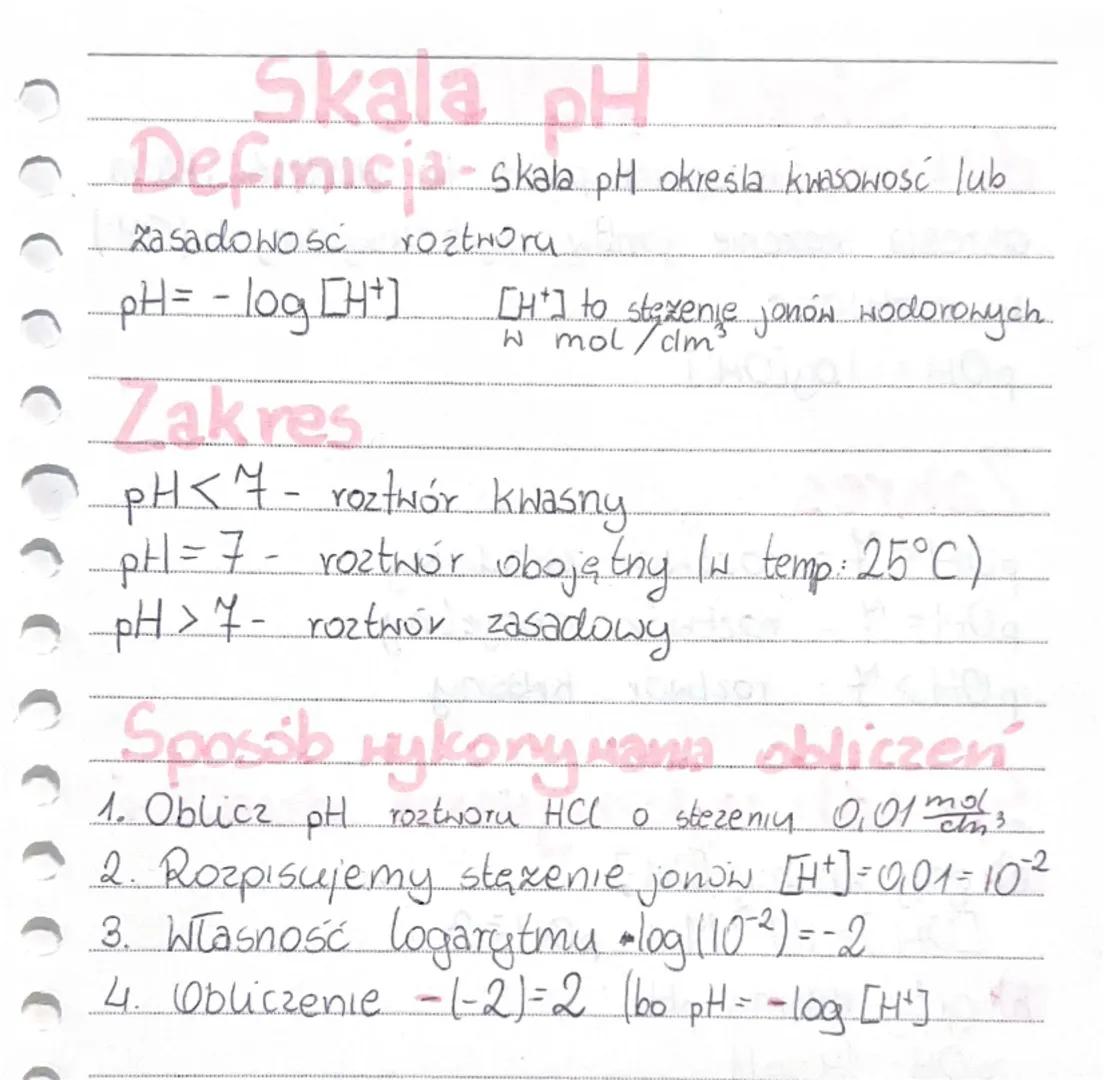 Skala pH
Definicja - Skala pH określa kwasowość lub
zasadowość roztworu
pH = - log [H⁺] [H⁺] to stężenie jonów wodorowych
w mol/dm³
Zakres
pH < 7 - roztwór kwasny
pH = 7 - roztwór obojętny (w temp: 25°C)
pH > 7 - roztwór zasadowy
Sposób wykonywania obliczeń
1. Oblicz pH roztworu HCl o stezeniu 0,01 mol/dm³
2. Rozpisujemy stężenie jonów [H⁺] = 0,01 = 10⁻²
3. Własność logarytmu log(10⁻²) = -2
4. Obliczenie -(-2) = 2 (bo pH = -log [H⁺]